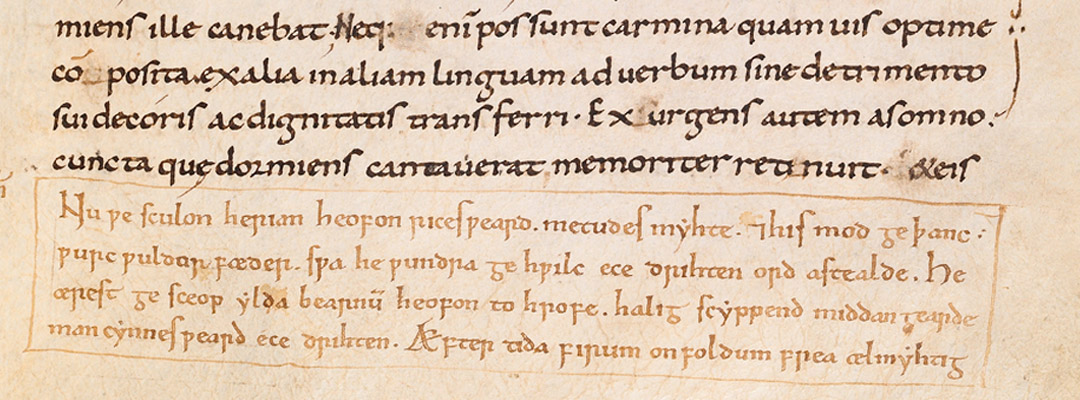 miens ille canebat. Neq; enī possunt carmina quamuis optime
cō posita. ex alia in aliam linguam ad uerbum sine detrimento
sui decoris ac dignitatis transferri. Exurgens autem a somno.
cuncta quę dormiens cantauerat memoriter retinuit. &eis
Nu ƿe sculon herian heofon rices ƿeard. metudes myhte. ⁊ his mod ge þanc.
ƿurc ƿuldor fæder. sƿa he ƿundra ge hƿilc ece drihten ord astealde. He
ærest ge sceop ylda bearnū heofon to hrofe. halig scyppend middan gearde
man cynnes ƿeard ece drihten. Æfter tida firum on foldum frea ælmyhtig